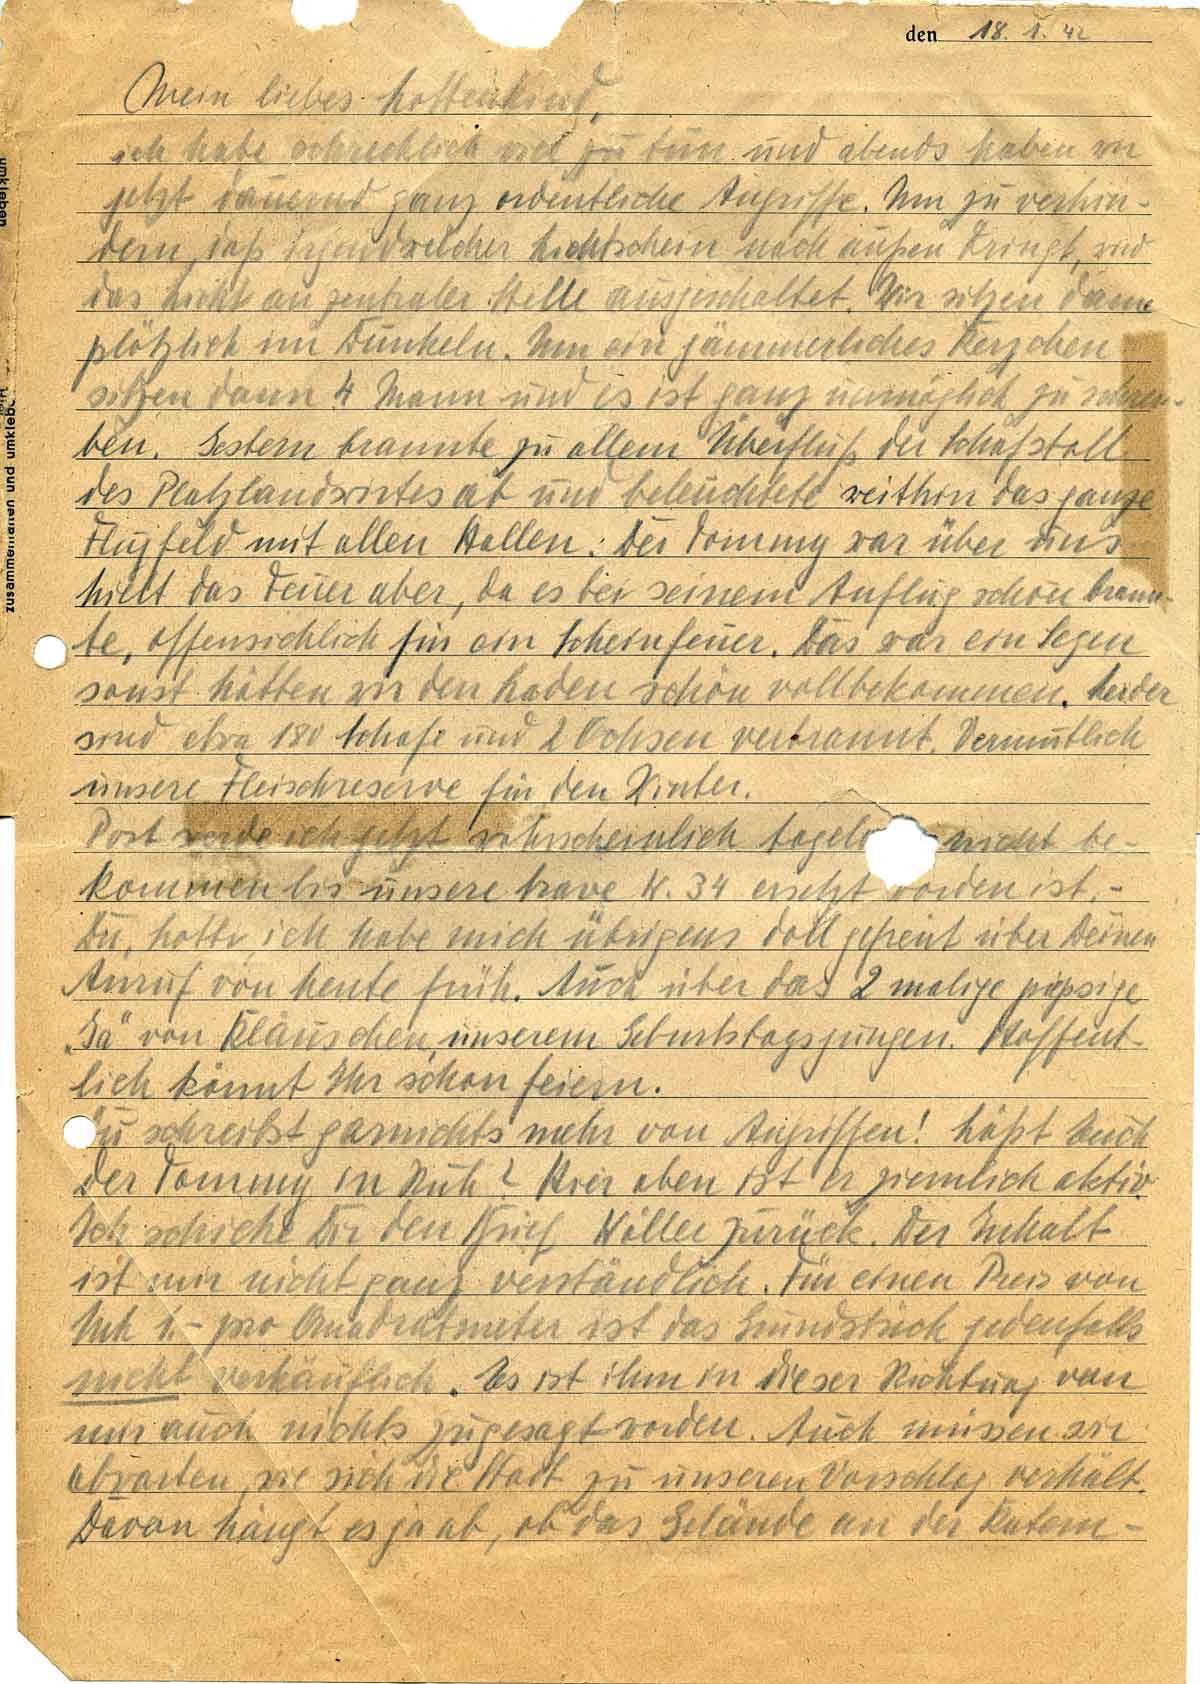 den 18. 1. 42
Mein liebes Lottenkind,
ich habe schrecklich viel zu tun und abends haben wir
jetzt dauernd ganz ordentliche Angriffe. Um zu verhin-
dern, daß irgendwelcher Lichtschein nach außen dringt, wird
das Licht an zentraler Stelle ausgeschaltet. Wir sitzen dann
plötzlich im Dunkeln. Um ein jämmerliches Kerzchen
sitzen dann 4 Mann und es ist ganz unmöglich zu schrei-
ben. Gestern brannte zu allem Überfluß der Schafstall
des Platzlandwirtes ab und beleuchtete weithin das ganze
Flugfeld mit allen Hallen. Der Tommy war über uns
hielt das Feuer aber, da es bei seinem Anflug schon brann-
te, offensichlich für ein Scheinfeuer. Das war ein Segen
sonst hätten wir den Laden schön vollbekommen. Leider
sind etwa 180 Schafe und 2 Ochsen verbrannt. Vermutlich
unsere Fleischreserve für den Winter.
Post werde ich jetzt wahrscheinlich nicht be-
kommen bis unsere brave W. 34 ersetzt worden ist. -
Du, Lotte, ich habe mich übrigens doll gefreut über Deinen
Anruf von heute früh. Auch über das 2 malige piepsige
„Ja" von Kläuschen, unserem Geburtstagsjungen. Hoffent-
lich könnt Ihr schön feiern.
Du schreibst garnichts mehr von Angriffen! Läßt Euch
der Tommy in Ruh? Hier oben ist er ziemlich aktiv.
Ich schicke Dir den Brief Höller zurück. Der Inhalt
ist mir nicht ganz verständlich. Für einen Preis von
Mk 1.- pro Quadratmeter ist das Grundstück jedenfalls
nicht verkäuflich. Es ist ihm in dieser Richtung von
mir auch nichts zugesagt worden. Auch müssen wir
abwarten, wie sich die Stadt zu unseren Vorschlag verhält.
Davon hängt es ja ab, ob das Gelände an der
zusammenfalten und umkleben
umkleben